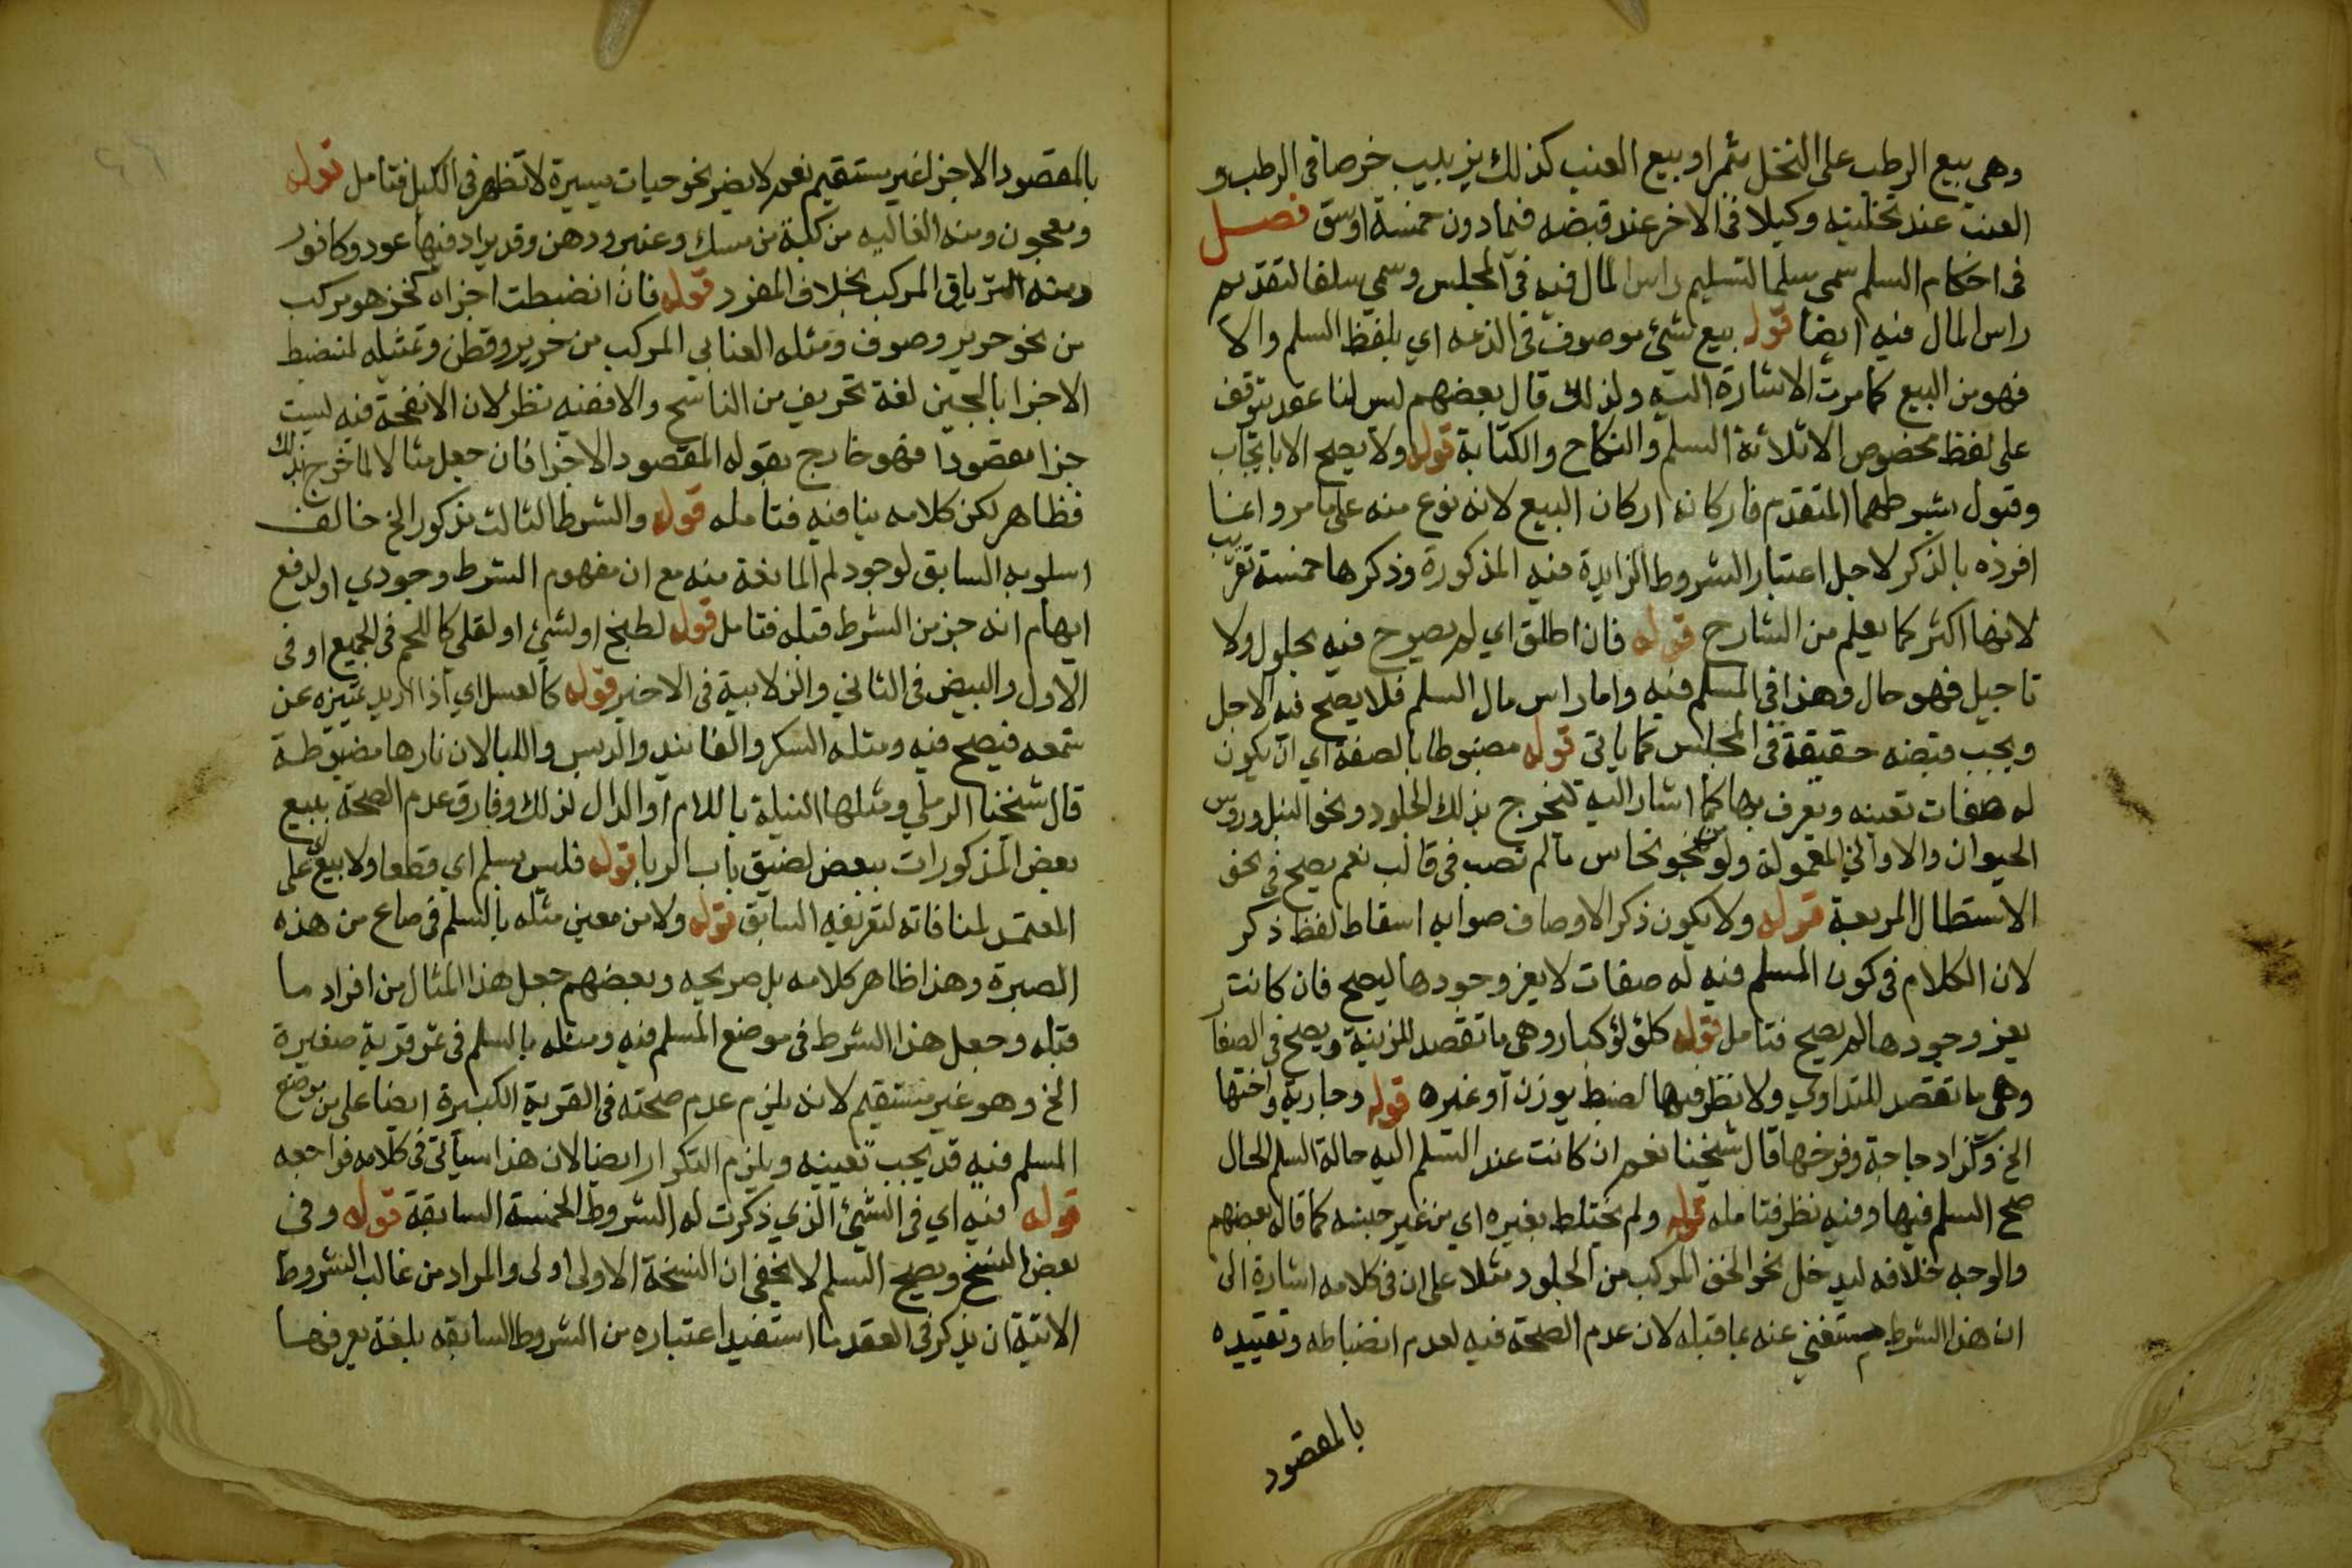 وهى بيع الرطب على النخل بثمر او بيع العنب كذلك بزبيب خرصا فى الرطب و
العنب عند تخليته وكيلا فى الاخر عند قبضه فيما دون خمسة اوسق فصل
فى احكام السلم سمى سلما لتسليم راس المال فيه فى المجلس وسمى سلفا لتقديم
راس المال فيه ايضا قوله بيع شئ موصوف فى الذمه اي بلفظ السلم والا
فهو من البيع كما مرت الاشارة اليه ولذلك قال بعضهم ليس لنا عقد يتوقف
على لفظ مخصوص الا ثلاثة السلم والنكاح والكتابة قوله ولا يصح الا بايجاب
وقبول بشرطهما المتقدم فاركانه اركان البيع لانه نوع منه على ما مر وانما
افرده بالذكر لاجل اعتبار الشروط الزايدة فيه المذكورة وذكرها خمسة تقريب
لانها اكثر كما يعلم من الشارح قوله فان اطلق اي لم يصرح فيه بحلول ولا
تاجيل فهو حال وهذا فى المسلم فيه واما راس مال السلم فلا يصح فيه الاجل
ويجب قبضه حقيقة فى المجلس كما ياتى قوله مضبوطا بالصفة اي ان يكون
له صفات تعينه ويعرف بها كما اشار اليه تخرج بذلك الجلود ونحو النبل وروس
الحيوان والاواني المعمولة ولو من نحو نحاس ما لم تصب فى قالب نعم يصح فى نحو
الاسطال المربعة قوله ولا يكون ذكر الاوصاف صوابه اسقاط لفظ ذكر
لان الكلام فى كون المسلم فيه له صفات لا يعز وجودها ليصح فان كانت
يعز وجودها لم يصح فتامل قوله كلؤلؤ كبار وهى ما تقصد للزينة ويصح فى الصغار
وهى ما تقصد للتداوي ولا نظر فيها لضبط بوزن او غيره قوله وجارية واختها
الخ وتزاد جاجة وفرخها قال شيخنا نعم ان كانت عند التسلم اليه حالة السلم الحال
صح السلم فيها وفيه نظر فتامله قوله ولم يختلط بغيره اي من غير جنسه كما قاله بعضهم
والوجه خلافه ليدخل نحو الخف المركب من الجلود مثلا على ان فى كلامه اشارة الى
ان هذا الشرط مستغني عنه بما قبله لان عدم الصحة فيه لعدم انضباطه وتقييده
بالمقصود
بالمقصود الاجزا غير مستقيم نعم لا يضر نحو حبات يسيرة لا تظهر فى الكيل فتامل قوله
ومعجون ومنه الغاليه مركبة من مسك وعنبر ودهن وقد يزاد فيها عود وكافور
ومثله الترياق المركب بخلاف المفرد قوله فان انضبطت اجزاه كخز هو مركب
من نحو حرير وصوف ومثله العتابي المركب من حرير وقطن وتمثيله لمنضبط
الاجزا بالجبن لغة تحريف من الناسخ والا ففيه نظر لان الانفحة فيه ليست
جزا مقصودا فهو خارج بقوله المقصود الاجزا فان جعل مثالا لما خرج بذلك
فظاهر لكن كلامه ينافيه فتامله قوله والشرط الثالث مذكور الخ خالف
اسلوبه السابق لوجود لم المانعة منه مع ان مفهوم الشرط وجودي او لدفع
ايهام انه جز من الشرط قبله فتامل قوله لطبخ او لشئ او لقلي كاللحم فى الجميع او فى
الاول والبيض فى الثاني والزلابية فى الاخير قوله كالعسل اي اذا اريد تمييزه عن
شمعه فيصح فيه ومثله السكر والفانيد والدبس واللبا لان نارها مضبوطة
قال شيخنا الرملي ومثلها النيلة باللام او الدال لذلك وفارق عدم الصحة ببيع
بعض المذكورات ببعض لضيق باب الربا قوله فليس بسلم اي قطعا ولا بيع اي على
المعتمد لمنافاته لتعريفه السابق قوله ولا من معين مثله بالسلم فى صاع من هذه
الصبرة وهذا ظاهر كلامه بل صريحه وبعضهم جعل هذا المثال من افراد ما
قبله وجعل هذا الشرط فى موضع المسلم فيه ومثله بالسلم فى ثمر قرية صغيرة
الخ وهو غير مستقيم لانه يلزم عدم صحته فى القرية الكبيرة ايضا على من موضع
المسلم فيه قد يجب تعيينه ويلزم التكرار ايضا لان هذا سيأتي فى كلامه فراجعه
قوله فيه اي فى الشئ الذي ذكرت له الشروط الخمسة السابقة قوله وفى
بعض النسخ ويصح السلم لا يخفى ان النسخة الاولى اولى والمراد من غالب الشروط
الاتية ان يذكر فى العقد ما استفيد اعتباره من الشروط السابقه بلغة يعرفها